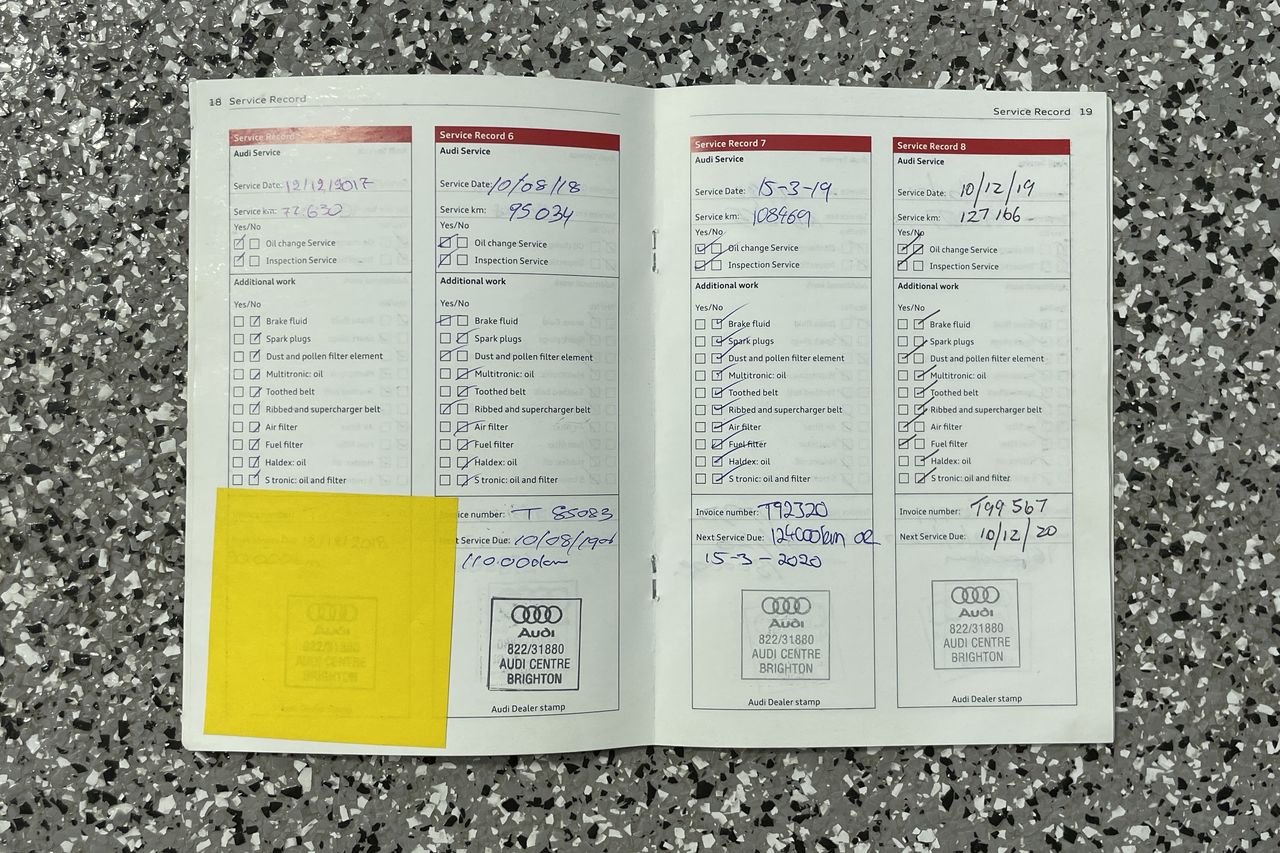 18 Service Record
Service Record
Audi Service
Service Date: 12/12/2017
Service km: 77630
Yes/No
Oil change Service
Inspection Service
Additional work
Yes/No
Brake fluid
Spark plugs
Dust and pollen filter element
Multitronic: oil
Toothed belt
Ribbed and supercharger belt
Air filter
Fuel filter
Haldex: oil
S tronic: oil and filter
Audi
822/31880
AUDI CENTRE
BRIGHTON
Service Record 6
Audi Service
Service Date: 10/08/18
Service km: 95034
Yes/No
Oil change Service
Inspection Service
Additional work
Yes/No
Brake fluid
Spark plugs
Dust and pollen filter element
Multitronic: oil
Toothed belt
Ribbed and supercharger belt
Air filter
Fuel filter
Haldex: oil
S tronic: oil and filter
number: T 85083
Service Due: 10/08/19
Audi
822/31880
AUDI CENTRE
BRIGHTON
Audi Dealer stamp
Service Record 19
Service Record 7
Audi Service
Service Date: 15-3-19
Service km:
Yes/No
Oil change Service
Inspection Service
Additional work
Yes/No
Brake fluid
Spark plugs
Dust and pollen filter element
Multitronic: oil
Toothed belt
Ribbed and supercharger belt
Air filter
Fuel filter
Haldex: oil
S tronic: oil and filter
Invoice number: T92320
Next Service Due: 124000km or
15-3-2020
Audi
822/31880
AUDI CENTRE
BRIGHTON
Audi Dealer stamp
Service Record 8
Audi Service
Service Date: 10/12/19
Service km: 127166
Yes/No
Oil change Service
Inspection Service
Additional work
Yes/No
Brake fluid
Spark plugs
Dust and pollen filter element
Multitronic: oil
Toothed belt
Ribbed and supercharger belt
Air filter
Fuel filter
Haldex: oil
S tronic: oil and filter
Invoice number: T99567
Next Service Due: 10/12/20
Audi
822/31880
AUDI CENTRE
BRIGHTON
Audi Dealer stamp